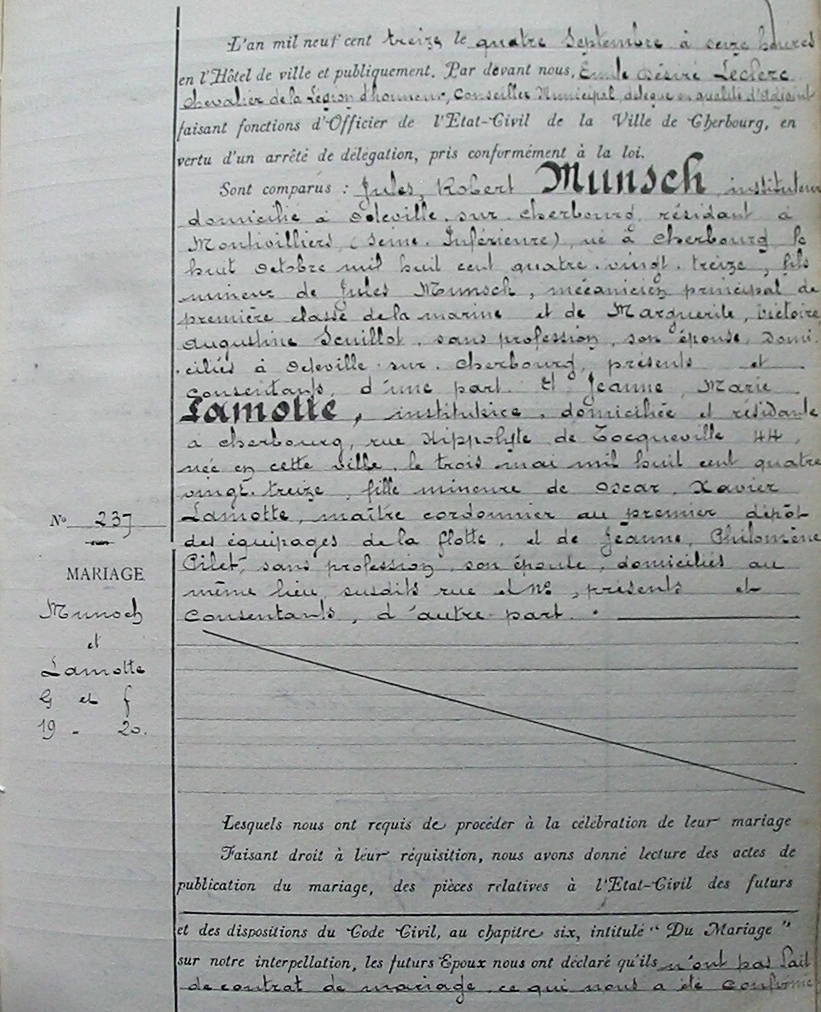 L'an mil neuf cent treize le quatre Septembre à seize heures
en l'Hôtel de ville et publiquement. Par devant nous, Emile Désiré Leclerc
Chevalier de la Légion d'honneur, Conseiller Municipal, délégué en qualité d'Adjoint
faisant fonctions d'Officier de l'Etat-Civil de la Ville de Cherbourg, en
vertu d'un arrêté de délégation, pris conformément à la loi.
Sont comparus : Jules, Robert Munsch, instituteur
domicilié à Octeville sur cherbourg, résidant à
Montivilliers (Seine Inférieure), né à Cherbourg le
huit Octobre mil huit cent quatre vingt treize, fils
mineur de Jules Munsch, mécanicien principal de
première classe de la marine et de Marguerite, Victoire
Augustine Senillot, sans profession, son épouse, domi-
ciliés à Octeville sur cherbourg, présents et
consentants, d'une part. Et Jeanne, Marie
Lamotte, institutrice, domiciliée et résidante
à cherbourg, rue Hippolyte de Tocqueville 44,
née en cette ville, le trois mai mil huit cent quatre
vingt treize, fille mineure de Oscar, Xavier
Lamotte, maître cordonnier au premier dépôt
des équipages de la flotte, et de Jeanne, Philomène
Pilet, sans profession, son épouse, domiciliés au
même lieu, susdits rue et No, présents et
Consentants, d'autre part.
No 237
MARIAGE
Munsch
et
Lamotte
G et f
19 - 20.
Lesquels nous ont requis de procéder à la célébration de leur mariage
Faisant droit à leur réquisition, nous avons donné lecture des actes de
publication du mariage, des pièces relatives à l'Etat-Civil des futurs
et des dispositions du Code Civil, au chapitre six, intitulé "Du Mariage"
sur notre interpellation, les futurs Epoux nous ont déclaré qu'ils n'ont pas fait
de contrat de mariage, ce qui nous a été confirmé